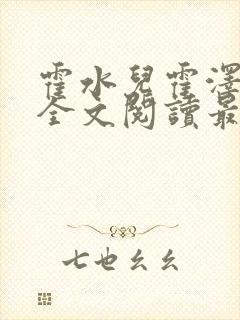 霍水兒霍澤
全文閱讀最
七也幺幺